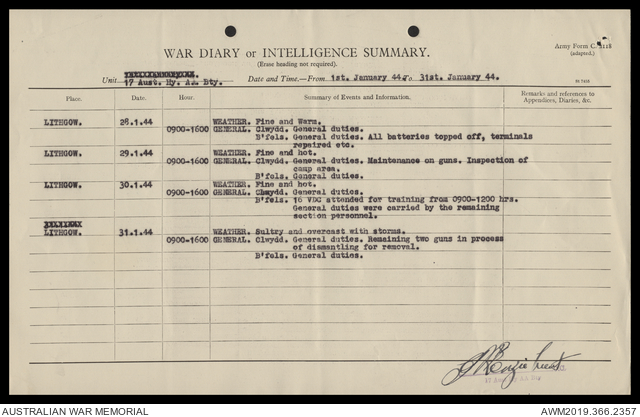 WAR DIARY or INTELLIGENCE SUMMARY.
(Erase heading not required).
Army Form C. 2118
(adapted.)
Unit 17 Aust. Hy. AA Bty. Date and Time.—From 1st. January 44 To 31st. January 44.
Place. Date. Hour. Summary of Events and Information. Remarks and references to
Appendices, Diaries, &c.
LITHGOW. 28.1.44 WEATHER. Fine and Warm.
0900-1600 GENERAL. Clwydd. General duties.
B'fels. General duties. All batteries topped off, terminals
repaired etc.
LITHGOW. 29.1.44 WEATHER. Fine and hot.
0900-1600 GENERAL. Clwydd. General duties. Maintenance on guns. Inspection of
camp area.
B'fels. General duties.
LITHGOW. 30.1.44 WEATHER. Fine and hot.
0900-1600 GENERAL. Clwydd. General duties.
B'fels. 16 VDC attended for training from 0900-1200 hrs.
General duties were carried by the remaining
section personnel.
LITHGOW. 31.1.44 WEATHER. Sultry and overcast with storms.
0900-1600 GENERAL. Clwydd. General duties. Remaining two guns in process
of dismantling for removal.
B'fels. General duties.
AUSTRALIAN WAR MEMORIAL AWM2019.366.2357